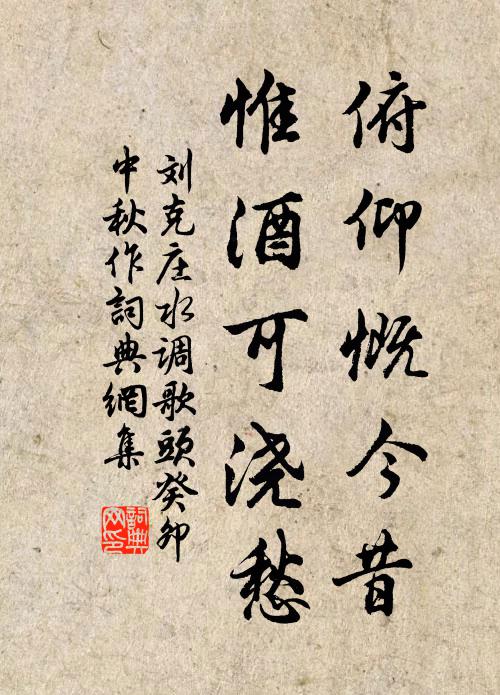 俯仰慨今昔
惟酒可浇愁
刘克庄水调歌頭癸卯
中秋作詞典網集
詞典网印